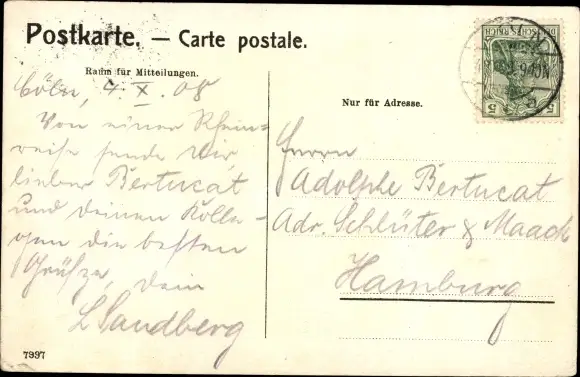 Postkarte. — Carte postale.
Raum für Mitteilungen.
Cöln, 4. X. 08
Von einer Rhein-
reise sende Dir,
lieber Bertucat
und deinen Kolle-
gen die besten
Grüße, Dein
L Sandberg
7997
Nur für Adresse.
Herrn
Adolphe Bertucat
Adr. Schlüter & Maack
Hamburg
DEUTSCHES REICH
5 5